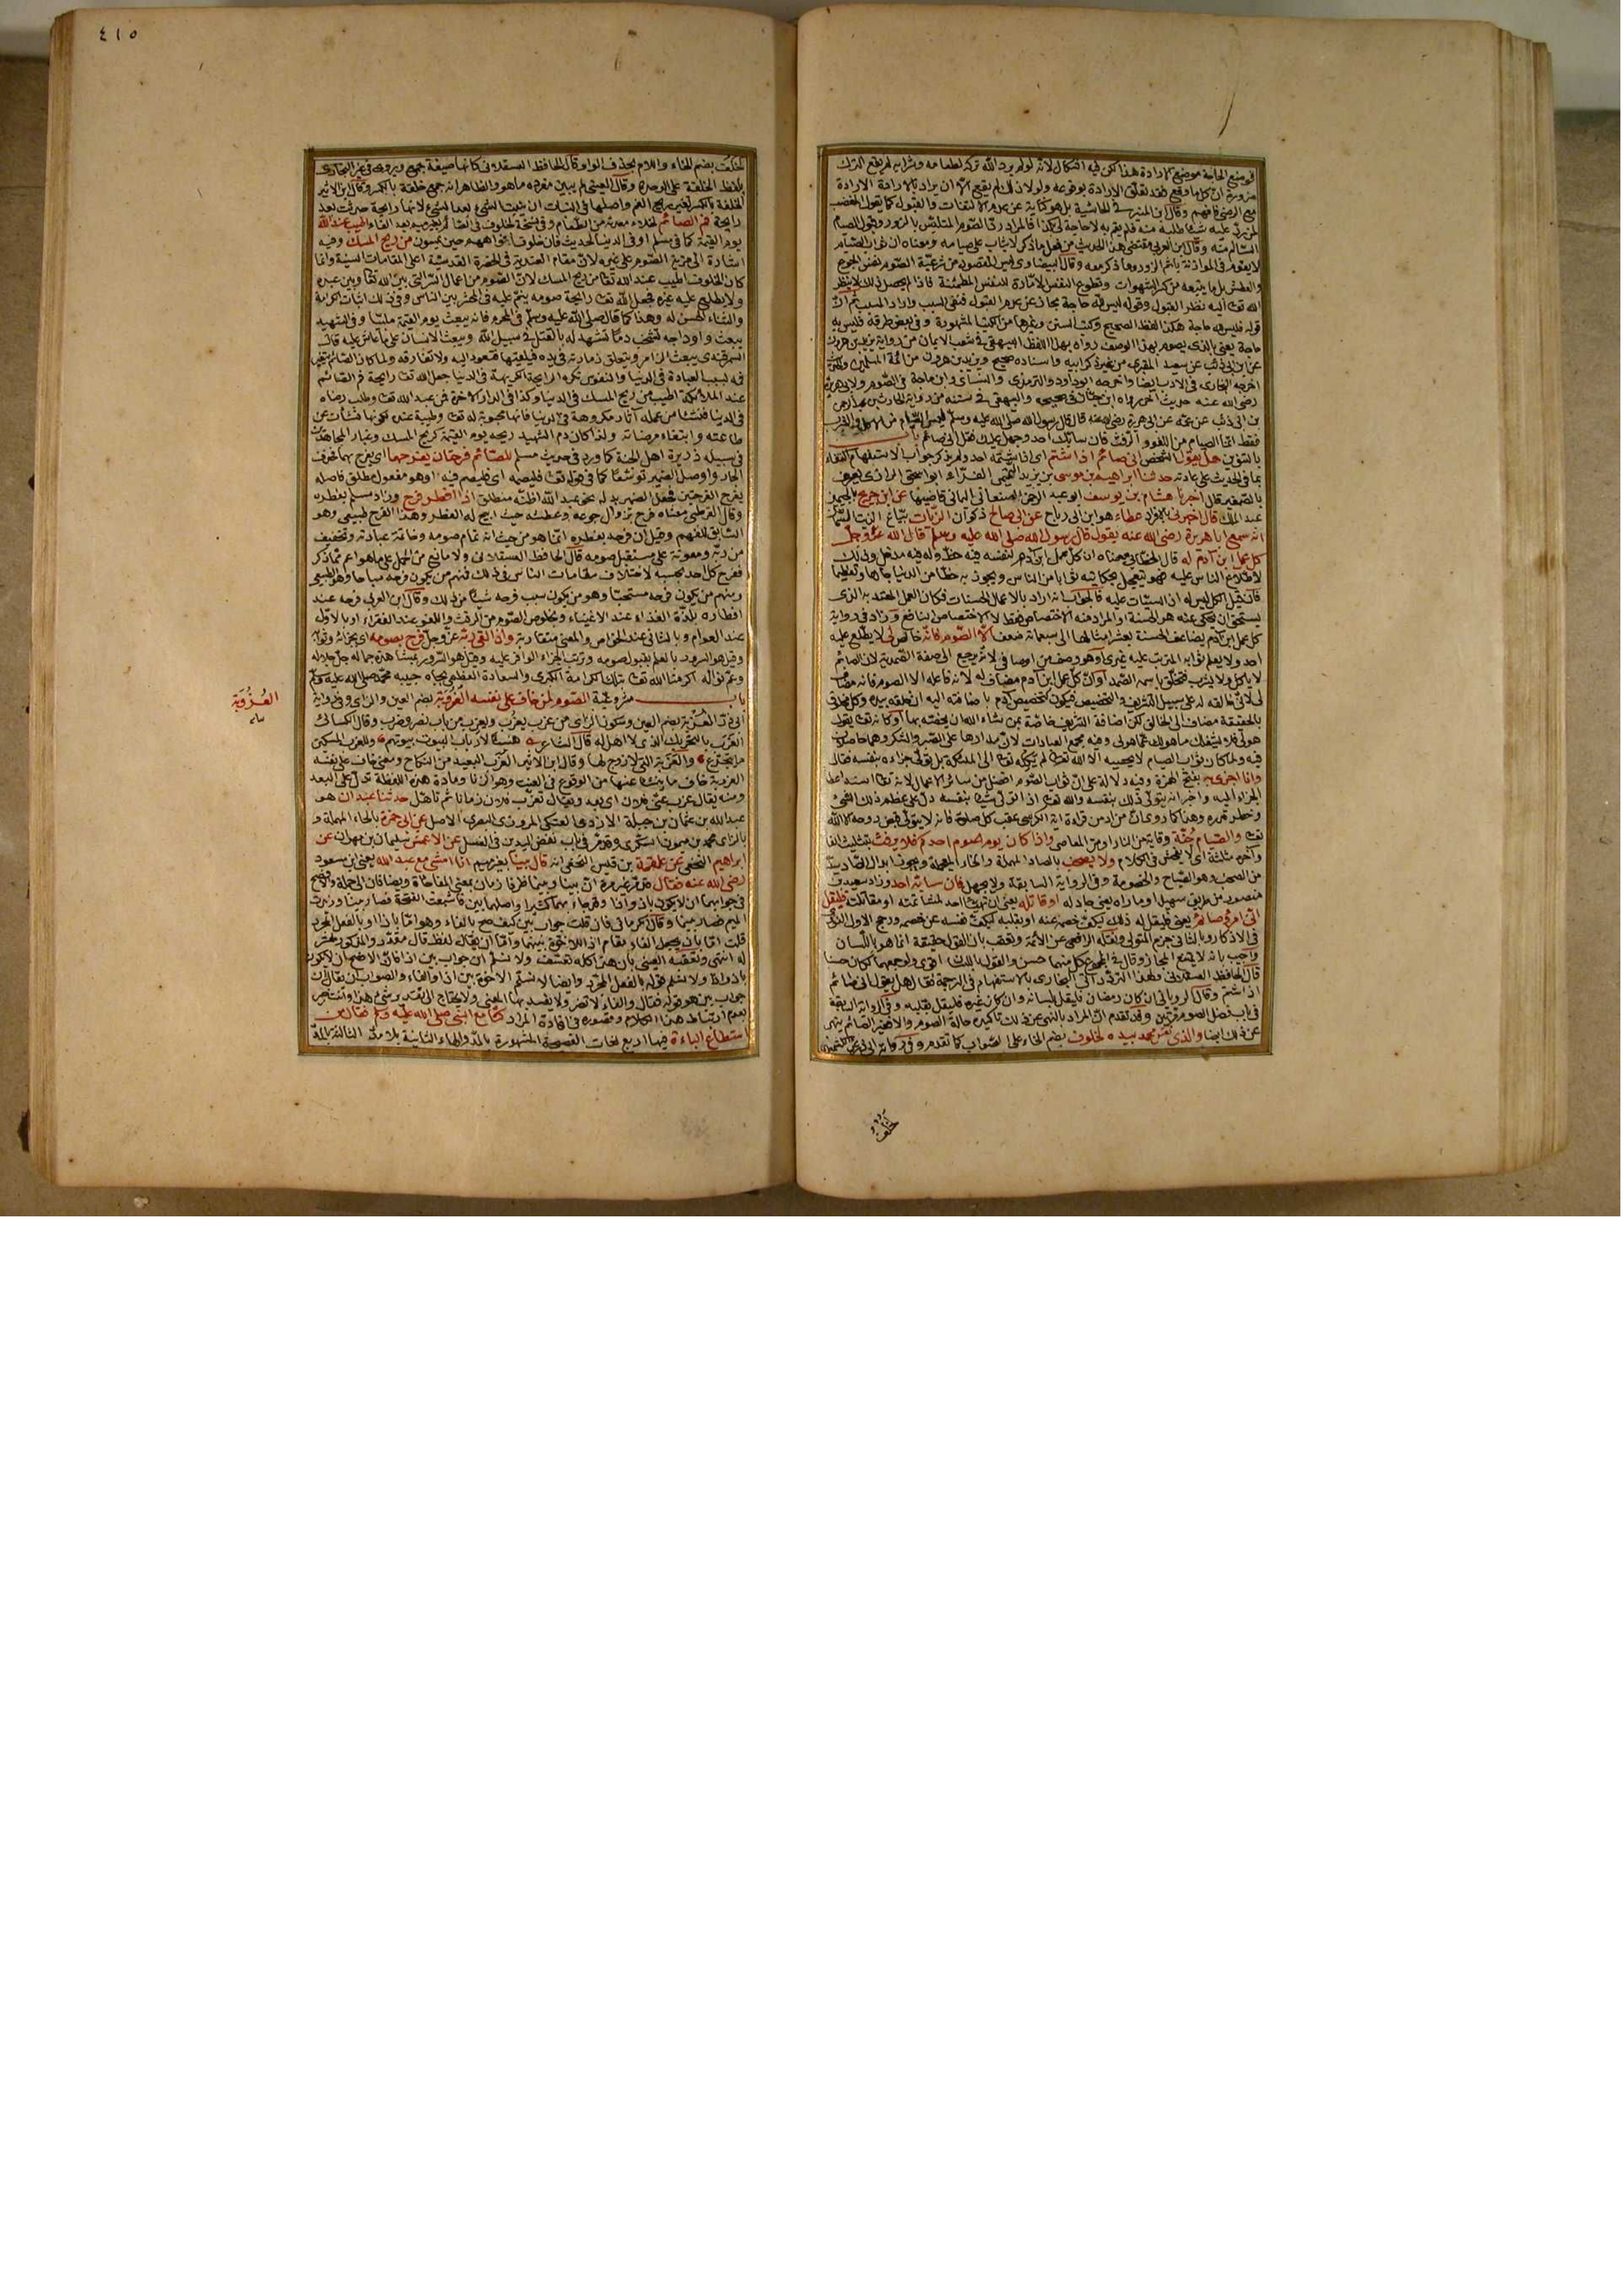 في منع الحاجة موضع الارادة هذا لكن فيه اشكال لانه لو لم يرد الله تركه لطعامه وشرابه لم يقع الترك
ضرورة ان كل ما وقع فقد تعلق الارادة بوقوعه ولولا ذلك لم يقع الا ان يراد بالارادة الارادة
مع الرضى فافهم وقال ابن المنير في الحاشية بل هو كناية عن عدم الالتفات والقبول كما يقول المغضب
لمن رد عليه شيئا طلبه منه فلم يقم به لا حاجة لي بكذا فالمراد رد الصوم المتلبس بالزور وقبول الصيام
السالم منه وقال ابن العربي مقتضى هذا الحديث من فعل ما ذكر لا يثاب على صيامه ومعناه ان ثواب الصيام
لا يقوم في الموازنة باثم الزور وما ذكر معه وقال البيضاوي ليس المقصود من شرعية الصوم نفس الجوع
والعطش بل ما يتبعه من كسر الشهوات وتطويع النفس الامارة للنفس المطمئنة فاذا لم يحصل ذلك لا ينظر
الله تعالى اليه نظر القبول وقوله ليس لله حاجة مجاز عن عدم القبول فنفى السبب واراد المسبب ثم ان
قوله فليس لله حاجة هكذا لفظ الصحيح وكتب السنن وغيرها من الكتب المشهورة وفي بعض طرقه فليس به
حاجة يعني بالذي يصوم بهذا الوصف رواه بهذا اللفظ البيهقي في شعب الايمان من رواية يزيد بن هرون
عن ابن ابي ذئب عن سعيد المقبري من غير ذكر ابيه واسناده صحيح ويزيد بن هرون من ائمة المسلمين
اخرجه البخاري في الادب ايضا واخرجه ابو داود والترمذي والنسائي وابن ماجة في الصوم ولابي هريرة
رضي الله عنه حديث آخر رواه ابن حبان في صحيحه والبيهقي في سننه من رواية الحارث بن عبد الرحمن
بن ابي ذئب عن عمه عن ابي هريرة رضي الله عنه قال قال رسول الله صلى الله عليه وسلم ليس الصيام من الاكل والشرب
فقط انما الصيام من اللغو والرفث فان سابك احد وجهل عليك فقل اني صائم باب
بالتنوين هل يقول الشخص اني صائم اذا شتم اى اذا شتمه احد ولم يذكر جواب الاستفهام اكتفاء
بما في الحديث على عادته حدثنا ابراهيم بن موسى بن يزيد التميمي الفراء ابو اسحق الرازي يعرف
بالصغير قال اخبرنا هشام بن يوسف ابو عبد الرحمن الصنعاني اليماني قاضيها عن ابن جريج بالجيمين
عبد الملك قال اخبرني بالافراد عطاء هو ابن ابي رباح عن ابي صالح ذكوان الزيات بياع الزيت السمان
انه سمع ابا هريرة رضي الله عنه يقول قال رسول الله صلى الله عليه وسلم قال الله عز وجل
كل عمل ابن آدم له قال الخطابي معناه ان كل عمل ابن آدم لنفسه فيه حظ وله فيه مدخل وذلك
لاطلاع الناس عليه فهو يتعجل بحكايته ثوابا من الناس ويجوز به حظا من الدنيا جاها وتعظيما
فان قيل الكل ليس له اذ السيئات عليه فالجواب انه اراد بالاعمال الحسنات فكان العمل المعتد به الذي
يستحق ان يحكى عنه هو الحسنة او المراد منه الاختصاص فقط لا الاختصاص النافع وزاد في رواية
كل عمل ابن آدم يضاعف الحسنة بعشر امثالها الى سبعمائة ضعف الا الصوم فانه خالص لي لا يطلع عليه
احد ولا يعلم ثوابه المترتب عليه غيري او هو وصف من اوصافي لانه يرجع الى صفة الصمدية لان الصائم
لا ياكل ولا يشرب فتخلق باسمه الصمد او ان كل عمل ابن آدم مضاف له لانه فاعله الا الصوم فانه مضاف
لي لاني خالقه له على سبيل التشريف والتخصيص فيكون كتخصيص آدم باضافته اليه ان خلقه بيده وكل مخلوق
بالحقيقة مضاف الى الخالق لكن اضافة التشريف خاصة بمن يشاء الله ان يخصه بها او كانه تعالى يقول
هو لي فلا يشغلك ما هو لك عما هو لي وفيه مجمع العبادات لان مدارها على الصبر والشكر وهما حاصلان
فيه ولما كان ثواب الصيام لا يحصيه الا الله تعالى لم يكله تعالى الى الملائكة بل تولى جزاءه بنفسه فقال
وانا اجزي به بفتح الهمزة وفيه دلالة على ان ثواب الصوم افضل من سائر الاعمال لانه تعالى اسند اعطاء
الجزاء اليه واخبر انه يتولى ذلك بنفسه والله تعالى اذا تولى شيئا بنفسه دل على عظم ذلك الشيء
وخطر قدره وهذا كما روي ان من ادمن قراءة آية الكرسي عقب كل صلوة فانه لا يتولى قبض روحه الا الله
تعالى والصيام جنة وقاية من النار او من المعاصي واذا كان يوم صوم احدكم فلا يرفث بتثليث الفاء
وآخره مثلثة اى لا يفحش في الكلام ولا يصخب بالصاد المهملة والخاء المعجمة ويجوز ابدال الصاد سينا
من الصخب وهو الصياح والخصومة وفي الرواية السابقة ولا يجهل فان سابه احد وزاد سعيد بن
منصور من طريق سهيل او ماراه يعني جادله او قاتله يعني ان تهيأ احد لمشاتمته او مقاتلته فليقل
اني امرؤ صائم يعني فليقل له ذلك ليكف خصمه عنه او بقلبه ليكف نفسه عن خصمه ورجح الاول النووي
في الاذكار وبالثاني جزم المتولي ونقله الرافعي عن الائمة وتعقب بان القول حقيقة انما هو باللسان
واجيب بانه لا يمنع المجاز وقال في المجموع كل منهما حسن والقول باللسان اقوى ولو جمعهما لكان حسنا
قال الحافظ العسقلاني ولهذا التردد اتى البخاري بالاستفهام في الترجمة فقال هل يقول اني صائم
اذا شتم وقال الروياني ان كان رمضان فليقل بلسانه وان كان غيره فليقل بقلبه وفي الرواية السابقة
في باب فضل الصوم مرتين وقد تقدم ان المراد بالنهي عن ذلك تاكيده حالة الصوم والا فغير الصائم ينهى
عن ذلك ايضا والذي نفس محمد بيده لخلوف بضم الخاء على الصواب كما تقدم وفي رواية
لخلف
٤١٥
لخلف بضم الخاء واللام بحذف الواو قال الحافظ العسقلاني كانها صيغة جمع ويروى في غير البخاري
بلفظ الخلفة على الوحدة وقال العيني لم يبين مفرده ما هو والظاهر انه جمع خلفة بالكسر وقال ابن الاثير
الخلفة بالكسر تغير ريح الفم واصلها في النبات ان ينبت الشيء بعد الشيء لانها رايحة حدثت بعد
رايحة فم الصائم لخلاء معدته من الطعام اطيب عند الله
يوم القيمة كما في مسلم او في الدنيا لحديث فان خلوف افواههم حين يمسون من ريح المسك وفيه
اشارة الى مزية الصوم على غيره لان مقام العندية في الحضرة القدسية اعلى المقامات السنية وانما
كان الخلوف اطيب عند الله تعالى من ريح المسك لان الصوم من اعمال السر التي بين الله تعالى وبين عبده
ولا يطلع عليه غيره فجعل الله تعالى رايحة صومه ينم عليه في المحشر بين الناس وفي ذلك اثبات الكرامة
والثناء الحسن له وهذا كما قال صلى الله عليه وسلم في المحرم فانه يبعث يوم القيمة ملبيا وفي الشهيد
يبعث واوداجه تشخب دما تشهد له بالقتل في سبيل الله ويبعث الانسان على ما عاش عليه قال
السمرقندي يبعث الزامر ويتعلق زمارته في يده فيلقيها فتعود اليه ولا تفارقه ولما كان الصائم يتغير
فمه بسبب العبادة في الدنيا والنفوس تكره الرايحة الكريهة في الدنيا جعل الله تعالى رايحة فم الصائم
عند الملائكة اطيب من ريح المسك في الدنيا وكذا في الدار الاخرة فمن عبد الله تعالى وطلب رضاه
في الدنيا فنشأ من عمله آثار مكروهة في الدنيا فانها محبوبة له تعالى وطيبة عنده لكونها نشأت عن
طاعته وابتغاء مرضاته ولذا كان دم الشهيد ريحه يوم القيمة كريح المسك وغبار المجاهدين
في سبيله ذريرة اهل الجنة كما ورد في حديث مسلم للصائم فرحتان يفرحهما اى يفرح بهما فحذف
الجار واوصل الضمير توسعا كما في قوله تعالى فليصمه اى فليصم فيه او هو مفعول مطلق فاصله
يفرح الفرحتين فجعل الضمير بدله نحو عبد الله اظنه منطلق اذا افطر فرح وزاد مسلم بفطره
وقال القرطبي معناه فرح بزوال جوعه وعطشه حيث ابيح له الفطر وهذا الفرح طبيعي وهو
السابق للفهم وقيل ان فرحه بفطره انما هو من حيث انه تمام صومه وخاتمة عبادته وتخفيف
من ربه ومعونة على مستقبل صومه قال الحافظ العسقلاني ولا مانع من الحمل على ما هو اعم مما ذكر
ففرح كل احد بحسبه لاختلاف مقامات الناس في ذلك فمنهم من يكون فرحه مباحا وهو الطبيعي
ومنهم من يكون فرحه مستحبا وهو من يكون سبب فرحه شيئا من ذلك وقال ابن العربي فرحه عند
افطاره بلذة الغذاء عند الاغنياء وبخلوص الصوم من الرفث واللغو عند الفقراء او بالاول
عند العوام وبالثاني عند الخواص والمعنى متقاربة واذا لقي ربه عز وجل فرح بصومه اى بجزائه وثوابه
وقيل هو السرور بالعلم بقبول صومه وترتب الجزاء الوافر عليه وقيل هو السرور بمشاهدة جماله جل جلاله
وعم نواله اكرمنا الله تعالى بتلك الكرامة الكبرى والسعادة العظمى بجاه حبيبه محمد صلى الله عليه وسلم
باب مشروعية الصوم لمن خاف على نفسه العزوبة بضم العين والزاي وفي رواية
العُزُوبَة
ابي ذر العزبة بضم العين وسكون الزاي من عزب يعزب ويعزب من باب نصر وضرب وقال الكسائي
العزب بالتحريك الذي لا اهل له قال الشاعر هنيئا لارباب البيوت بيوتهم وللعزب المسكين
ما يتجرع والعزبة التي لا زوج لها وقال ابن الاثير العزب البعيد من النكاح ومعنى خاف على نفسه
العزوبة خاف ما ينشأ عنها من الوقوع في العنت وهو الزنا ومادة هذه اللفظة تدل على البعد
ومنه يقال عزب عني فلان اى بعد ويقال تعزب فلان زمانا ثم تاهل حدثنا عبدان هو
عبد الله بن عثمان بن جبلة الازدي العتكي المروزي البصري الاصل عن ابي حمزة بالحاء المهملة و
بالزاي محمد بن ميمون السكري وقد مر في باب نفض اليدين في الغسل عن الاعمش سليمان بن مهران عن
ابراهيم النخعي عن علقمة بن قيس النخعي انه قال بينا بغير ميم انا امشي مع عبد الله يعني ابن مسعود
رضي الله عنه فقال قد مر غير مرة ان بينا وبينما ظرفا زمان بمعنى المفاجأة ويضافان الى جملة والافصح
في جوابهما ان لا يكون باذ واذا وقد جاء بهما كثيرا واصلهما بين فاشبعت الفتحة فصار بينا وزيدت
الميم فصار بينما وقال الكرماني فان قلت جواب بين كيف صح بالفاء وهو اما باذا او بالفعل المجرد
قلت اما بان يجعل الفاء مقام اذا للاخوة بينهما واما ان يقال لفظ قال مقدر والمذكور مفسر
له انتهى وتعقبه العيني بان هذا كله تعسف ولا نسلم ان جواب بين اذا فان الافصح ان لا يكون
باذ واذا ولا نسلم قوله بالفعل المجرد وايضا لا نسلم الاخوة بين اذا والفاء والصواب ان يقال ان
جواب بين هو قوله فقال والفاء لا تضر ولا يفسد بها المعنى ولا يحتاج الى تقدير شيء هذا وانت خبير
بعدم ارتباط هذا الكلام وقصوره في افادة المراد كنا مع النبي صلى الله عليه وسلم فقال من
استطاع الباءة فيها اربع لغات الفصيحة المشهورة بالمد والهاء الثانية بلا مد الثالثة بالمد